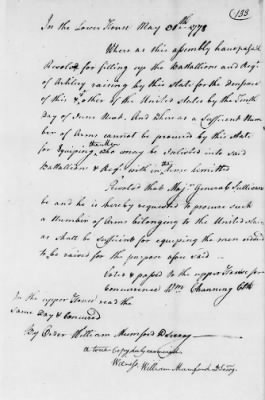 (133)
In the Lower House May 30th 1778
Where as this assembly have passed
Resolve for filling up the Battallions and Regt
of Artilery raising by this State for the Defense
of this & other of the United States by the Tenth
Day of June Next. And where as a Sufficent Num
ber of Arms cannot be procured by this State
for Equiping the Men who may be Inlisted into said
Battallions & Regt with in the time limitted
Resolved that Majr General Sullivan
be and he is hereby requested to procure such
a Number of Arms belonging to the United States
as shall be Sufficent for equiping the men
to be raised for the purpose afore said
Voted & passed to the upper House for
Concurrence Wm Channing Clk
In the upper House read the
Same Day & Concurred
By Order William Mumford D Secry
a true Copy
Witness William Mumford D Secry